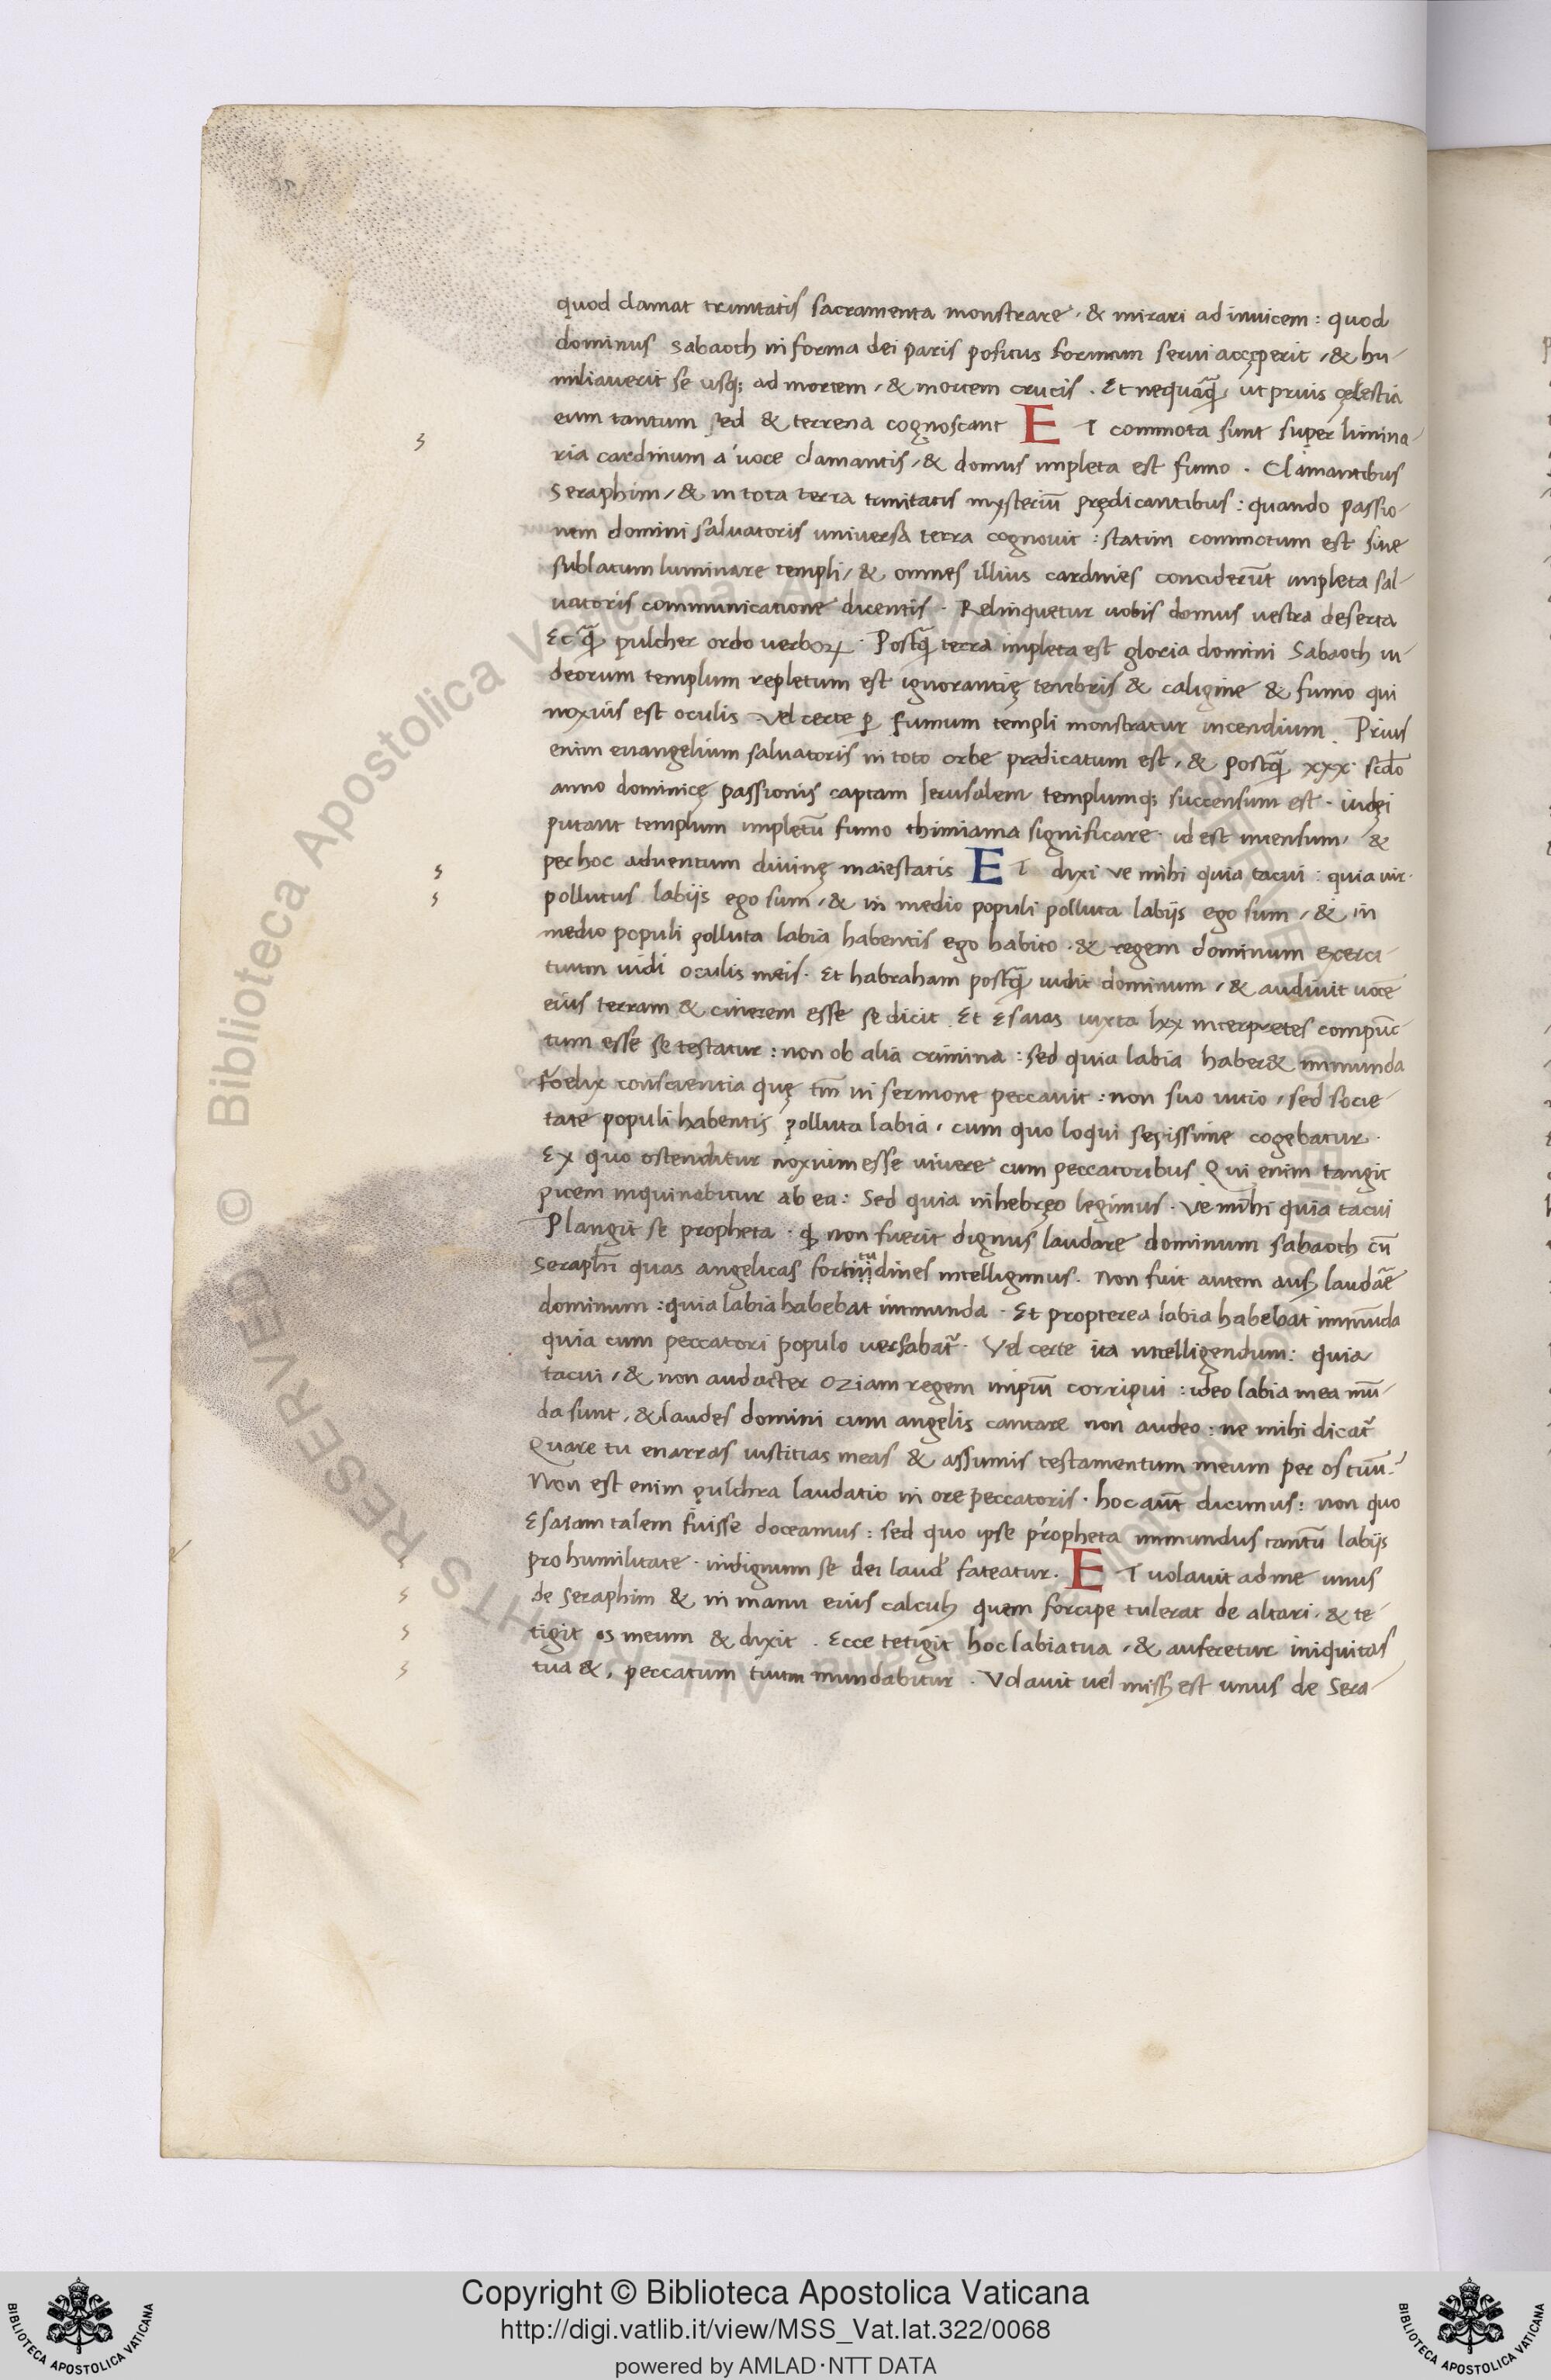 quod clamat trinitatis sacramenta monstrare, & mirari ad inuicem: quod
dominus Sabaoth in forma dei patris positus formam serui accęperit, & hu-
miliauerit se usq; ad mortem, & mortem crucis. Et nequāq̃, ut prius cęlestia
eum tantum sed & terrena cognoscant ET commota sunt super limina-
ria cardinum a' uoce clamantis, & domus impleta est fumo. Clamantibus
Seraphim, & in tota terra trinitatis mysteriū prędicantibus: quando passio-
nem domini saluatoris uniuersa terra cognouit: statim commotum est siue
sublatum luminare templi, & omnes illius cardines conciderūt impleta sal-
uatoris communicatione dicentis. Relinquetur uobis domus uestra deserta
Et q̃ pulcher ordo uerboꝝ. Postq̃ terra impleta est gloria domini Sabaoth iu-
deorum templum repletum est ignorantię tenebris & caligine & fumo qui
noxius est oculis. Vel certe ꝑ fumum templi monstratur incendium. Prius
enim euangelium saluatoris in toto orbe predicatum est, & postq̃ xxx. scdo
anno dominicę passionis captam Ierusalem templumq; succensum est. iudęi
putant templum impletū fumo thimiama significare. id est incensum, &
per hoc aduentum diuinę maiestatis ET dixi ve mihi quia tacui: quia uir.
pollutus labijs ego sum, & in medio populi polluta labijs ego sum, & in
medio populi polluta labia habentis ego habito. & regem dominum exerci-
tuum uidi oculis meis. Et habraham postq̃ uidit dominum, & audiuit uoce
eius terram & cinerem esse se dicit. Et Esaias iuxta lxx interpretes compūc-
tum esse se testatur: non ob alia crimina: sed quia labia haber& immunda
Foelix conscientia quę tm̄ in sermone peccauit: non suo uitio, sed socie-
tate populi habentis polluta labia, cum quo loqui sepissime cogebatur.
Ex quo ostenditur noxium esse uiuere cum peccatoribus Qui enim tangit
picem inquinabitur ab ea: Sed quia in hebręo legimus. Ve mihi quia tacui
Plangit se propheta. ꝙ non fuerit dignus laudare dominum sabaoth cū
Seraphī quas angelicas fortitudines intelligimus. Non fuit autem ausꝰ laudāe
dominum: quia labia habebat immunda. Et propterea labia habebat immūda
quia cum peccatori populo uersabat̃. Vel certe ita intelligendum: quia
tacui, & non audacter oziam regem impiū corripui: ideo labia mea imū-
da sunt, & laudes domini cum angelis cantare non audeo: ne mihi dicat̃
Quare tu enarras iustitias meas & assumis testamentum meum per os tuū?
Non est enim pulchra laudatio in ore peccatoris. hoc aūt dicimus: non quo
Esaiam talem fuisse doceamus: sed quo ipse propheta immundus tantū labijs
pro humilitate. indignum se dei laud' fateatur. ET uolauit ad me unus
de Seraphim & in manu eius calculꝰ quem forcipe tulerat de altari, & te-
tigit os meum & dixit. Ecce tetigit hoc labia tua, & auferetur iniquitas
tua &, peccatum tuum mundabitur. Volauit uel missꝰ est unus de Sera-
© Biblioteca Apostolica Vaticana ALL RIGHTS RESERVED
Copyright © Biblioteca Apostolica Vaticana
http://digi.vatlib.it/view/MSS_Vat.lat.322/0068
powered by AMLAD·NTT DATA
BIBLIOTECA APOSTOLICA VATICANA
BIBLIOTECA APOSTOLICA VATICANA